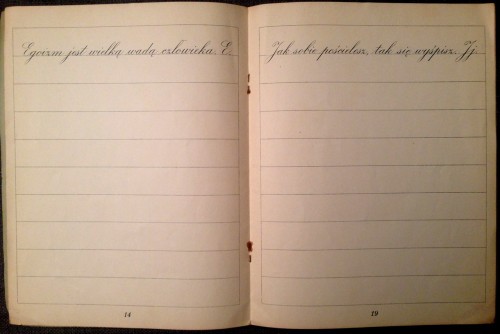 Egoizm jest wielką wadą człowieka. E.
Jak sobie pościelesz, tak się wyśpisz. Jj.
14
19